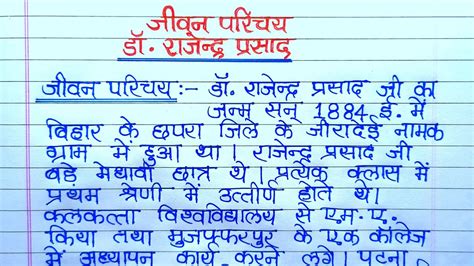 जीवन परिचय
डॉ. राजेन्द्र प्रसाद
जीवन परिचय:- डॉ. राजेन्द्र प्रसाद जी का
जन्म सन् 1884 ई. में
बिहार के छपरा जिले के जीरादेई नामक
ग्राम में हुआ था। राजेन्द्र प्रसाद जी
बड़े मेधावी छात्र थे। प्रत्येक क्लास में
प्रथम श्रेणी में उत्तीर्ण होते थे।
कलकत्ता विश्वविद्यालय से एम.ए.
किया तथा मुजफ्फरपुर के एक कॉलेज
में अध्यापन कार्य करने लगे। पटना